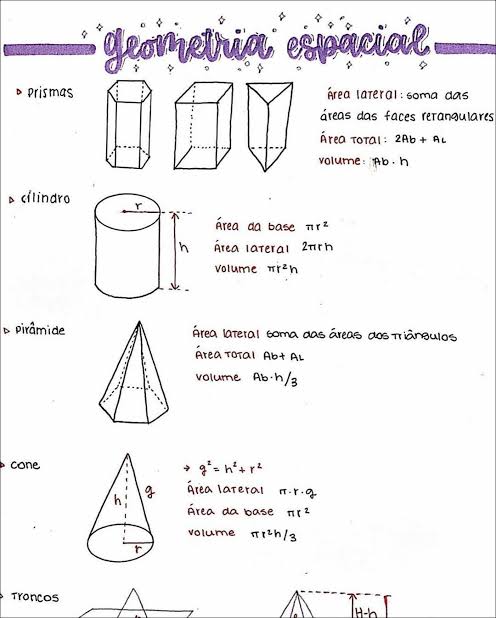 geometria espacial
▷ prismas
Área lateral: soma das
áreas das faces retangulares
Área total: 2Ab + AL
volume: Ab · h
▷ cilindro
r
h
Área da base πr²
Área lateral 2πrh
volume πr²h
▷ pirâmide
Área lateral soma das áreas dos triângulos
Área total Ab + AL
volume Ab·h/3
▷ cone
h
g
r
→ g² = h² + r²
Área lateral π·r·g
Área da base πr²
volume πr²h/3
▷ troncos
H-h